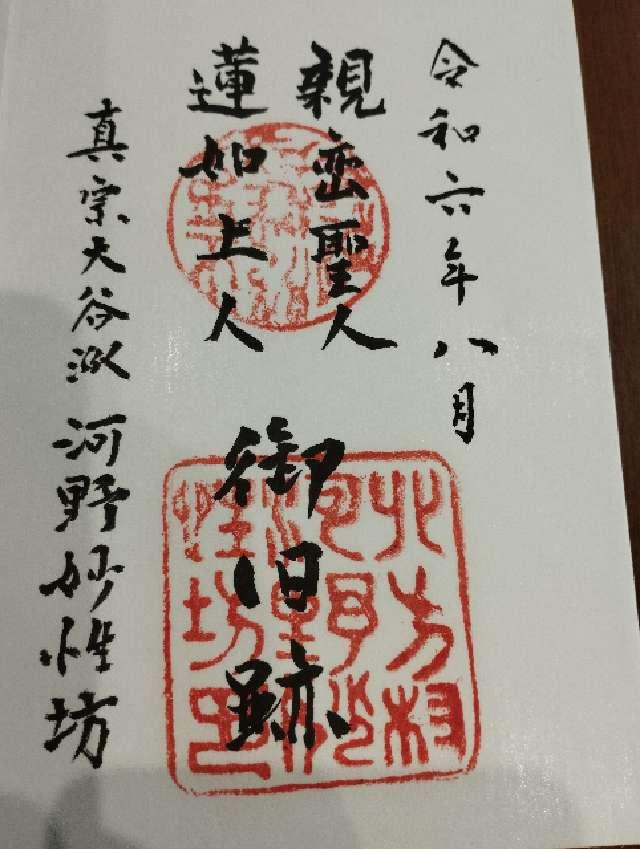 令和六年八月
親鸞聖人
蓮如上人
御旧跡
真宗大谷派 河野妙性坊
北方村